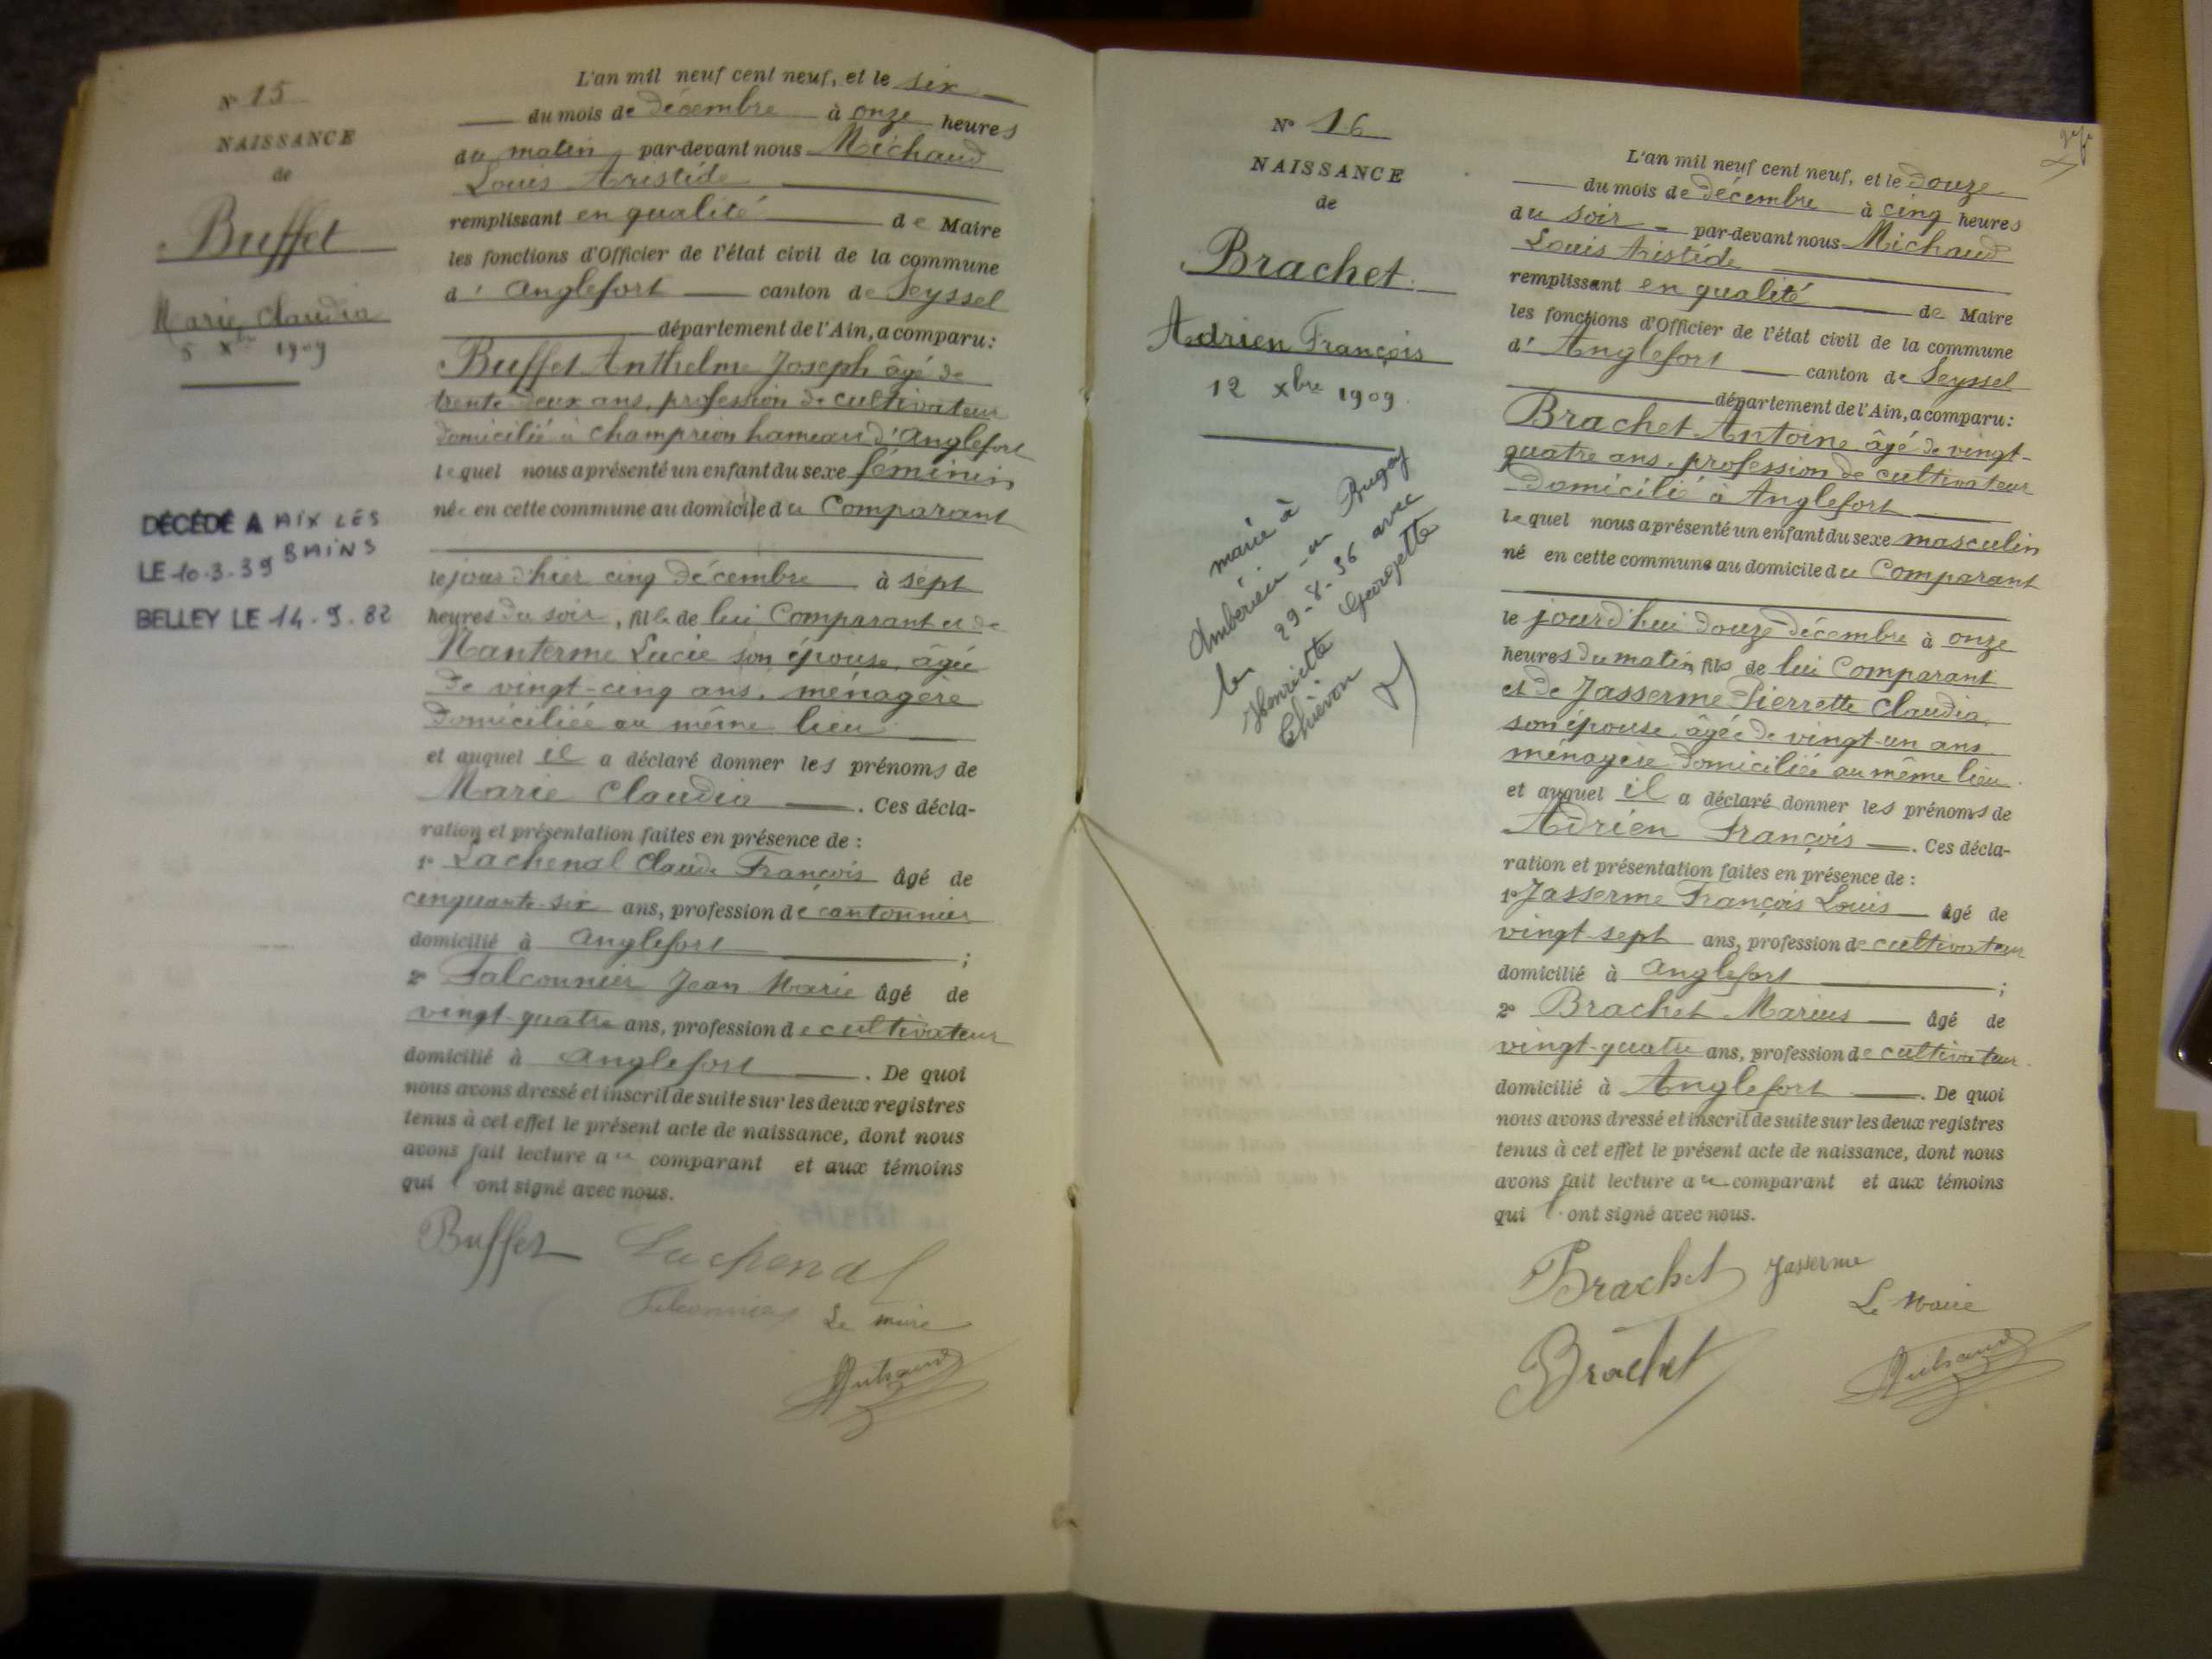 N° 15
NAISSANCE
de
Buffet
Marie Claudia
5 Xbre 1909
DÉCÉDÉ A AIX LES
BAINS
LE 10.3.39
BELLEY LE 14.9.82
L'an mil neuf cent neuf, et le six
du mois de décembre à onze heures
du matin par-devant nous Michaud
Louis Aristide
remplissant en qualité de Maire
les fonctions d'Officier de l'état civil de la commune
d' Anglefort canton de Seyssel
département de l'Ain, a comparu :
Buffet Anthelme Joseph âgé de
trente-deux ans, profession de cultivateur
domicilié à Champrion hameau d'Anglefort
lequel nous a présenté un enfant du sexe féminin
née en cette commune au domicile du Comparant
le jour d'hier cinq décembre à sept
heures du soir, fille de lui Comparant et de
Nanterme Lucie son épouse, âgée
de vingt-cinq ans, ménagère
domiciliée au même lieu
et auquel il a déclaré donner les prénoms de
Marie Claudia. Ces décla-
ration et présentation faites en présence de :
1° Lachenal Claude François âgé de
cinquante-six ans, profession de cantonnier
domicilié à Anglefort ;
2° Falconnier Jean Marie âgé de
vingt-quatre ans, profession de cultivateur
domicilié à Anglefort. De quoi
nous avons dressé et inscrit de suite sur les deux registres
tenus à cet effet le présent acte de naissance, dont nous
avons fait lecture au comparant et aux témoins
qui l'ont signé avec nous.
Buffet Lachenal
Falconnier Le maire
Michaud
N° 16
NAISSANCE
de
Brachet
Adrien François
12 xbre 1909
marié à
Ambérieu-en Bugey
le 29-8-36 avec
Henriette Georgette
L'an mil neuf cent neuf, et le douze
du mois de décembre à cinq heures
du soir par-devant nous Michaud
Louis Aristide
remplissant en qualité de Maire
les fonctions d'Officier de l'état civil de la commune
d' Anglefort canton de Seyssel
département de l'Ain, a comparu :
Brachet Antoine, âgé de vingt-
quatre ans, profession de cultivateur
domicilié à Anglefort
lequel nous a présenté un enfant du sexe masculin
né en cette commune au domicile du Comparant
le jourd'hui douze décembre à onze
heures du matin, fils de lui Comparant
et de Jasserme Pierrette Claudia,
son épouse, âgée de vingt-un ans
ménagère domiciliée au même lieu.
et auquel il a déclaré donner les prénoms de
Adrien François. Ces décla-
ration et présentation faites en présence de :
1° Jasserme François Louis âgé de
vingt-sept ans, profession de cultivateur
domicilié à Anglefort ;
2° Brachet Marius âgé de
vingt-quatre ans, profession de cultivateur
domicilié à Anglefort. De quoi
nous avons dressé et inscrit de suite sur les deux registres
tenus à cet effet le présent acte de naissance, dont nous
avons fait lecture au comparant et aux témoins
qui l'ont signé avec nous.
Brachet Jasserme
Le Maire
Brachet Michaud